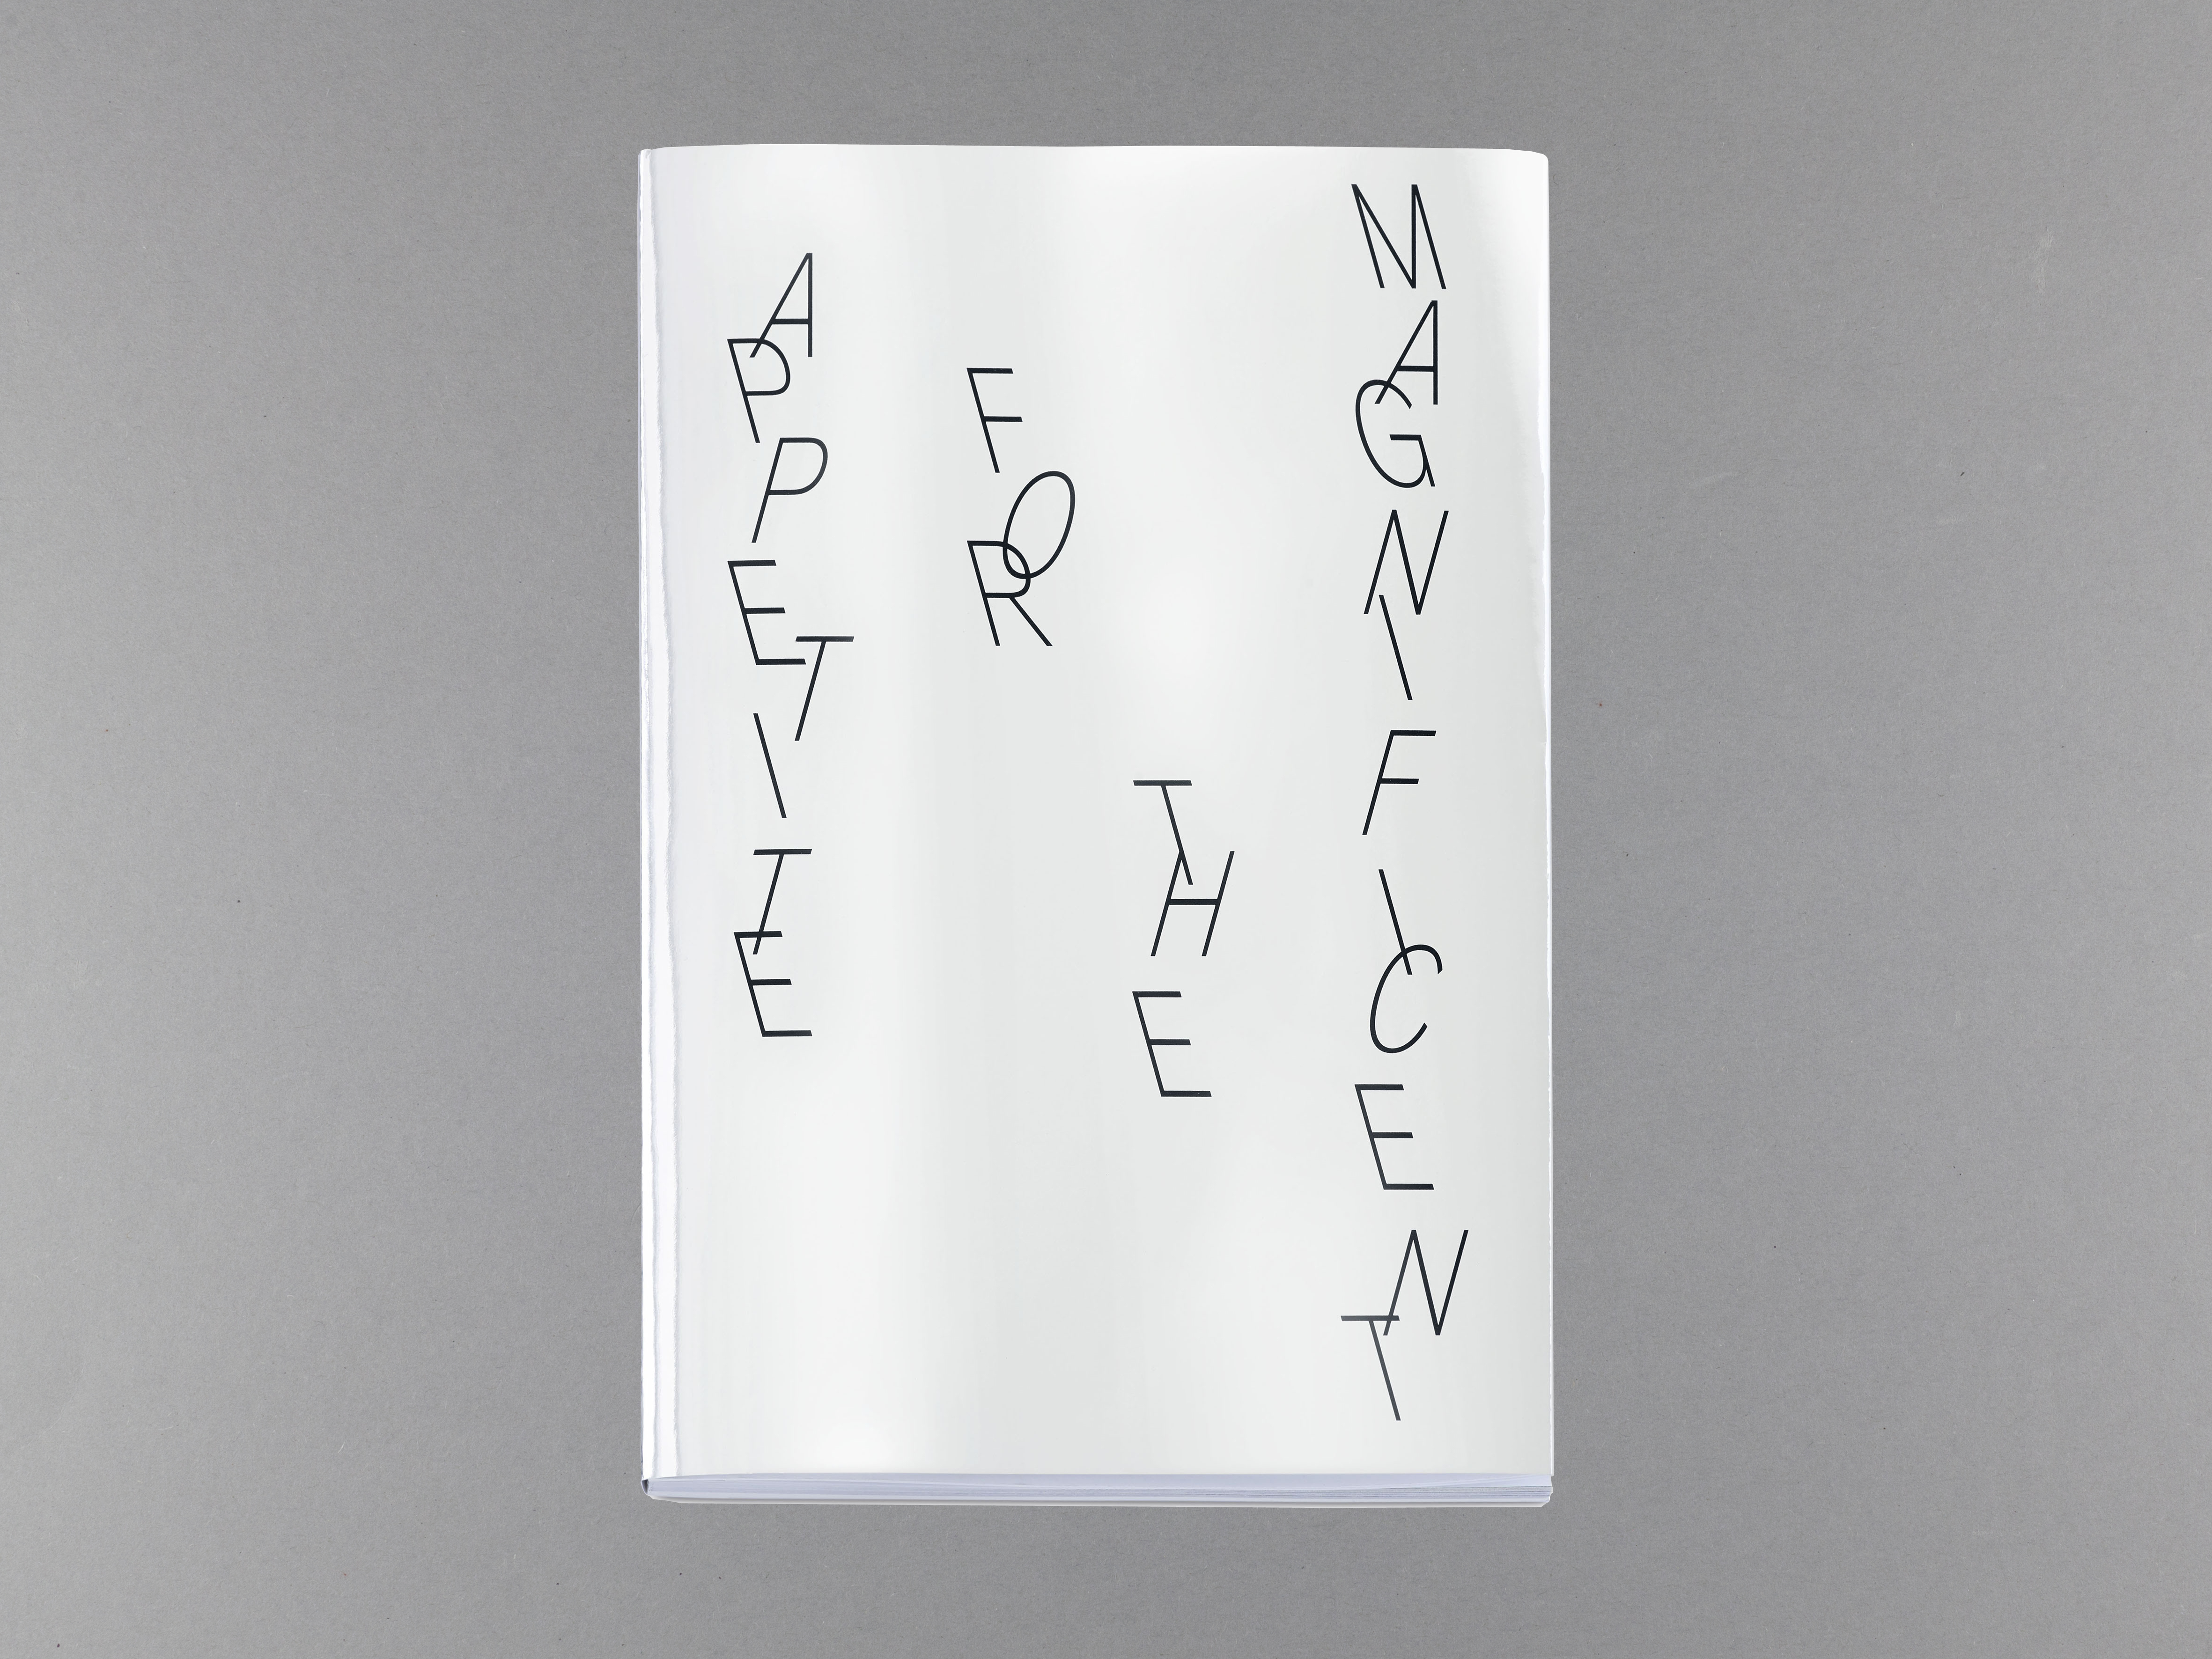 APPETITE
FOR
THE
MAGNIFICENT